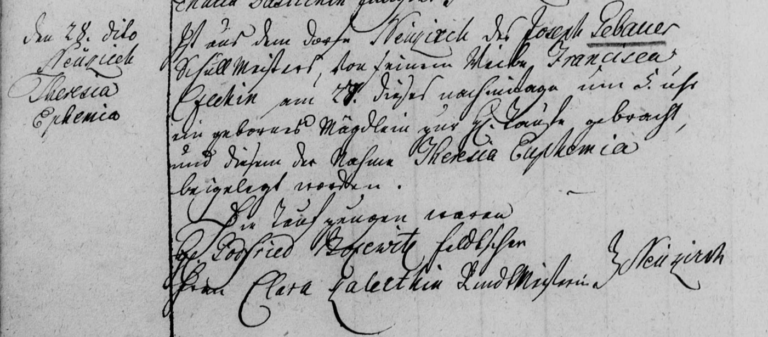 den 28. dito
Neuzirch
Theresia
Ephemia
Ist aus dem dorfe Neuzirch des Joseph Gebauer
Schull Meisters, von seinem Weibe Francisca,
am 28. dieses nachmittage um 5. uhr
ein gebornes Mägdlein zur H. Taufe gebracht,
und diesem der Nahme Theresia Euphemia
beigelegt worden.
Die Taufzeugen waren
Godfried feldscher
Frau Clara } Neuzirch